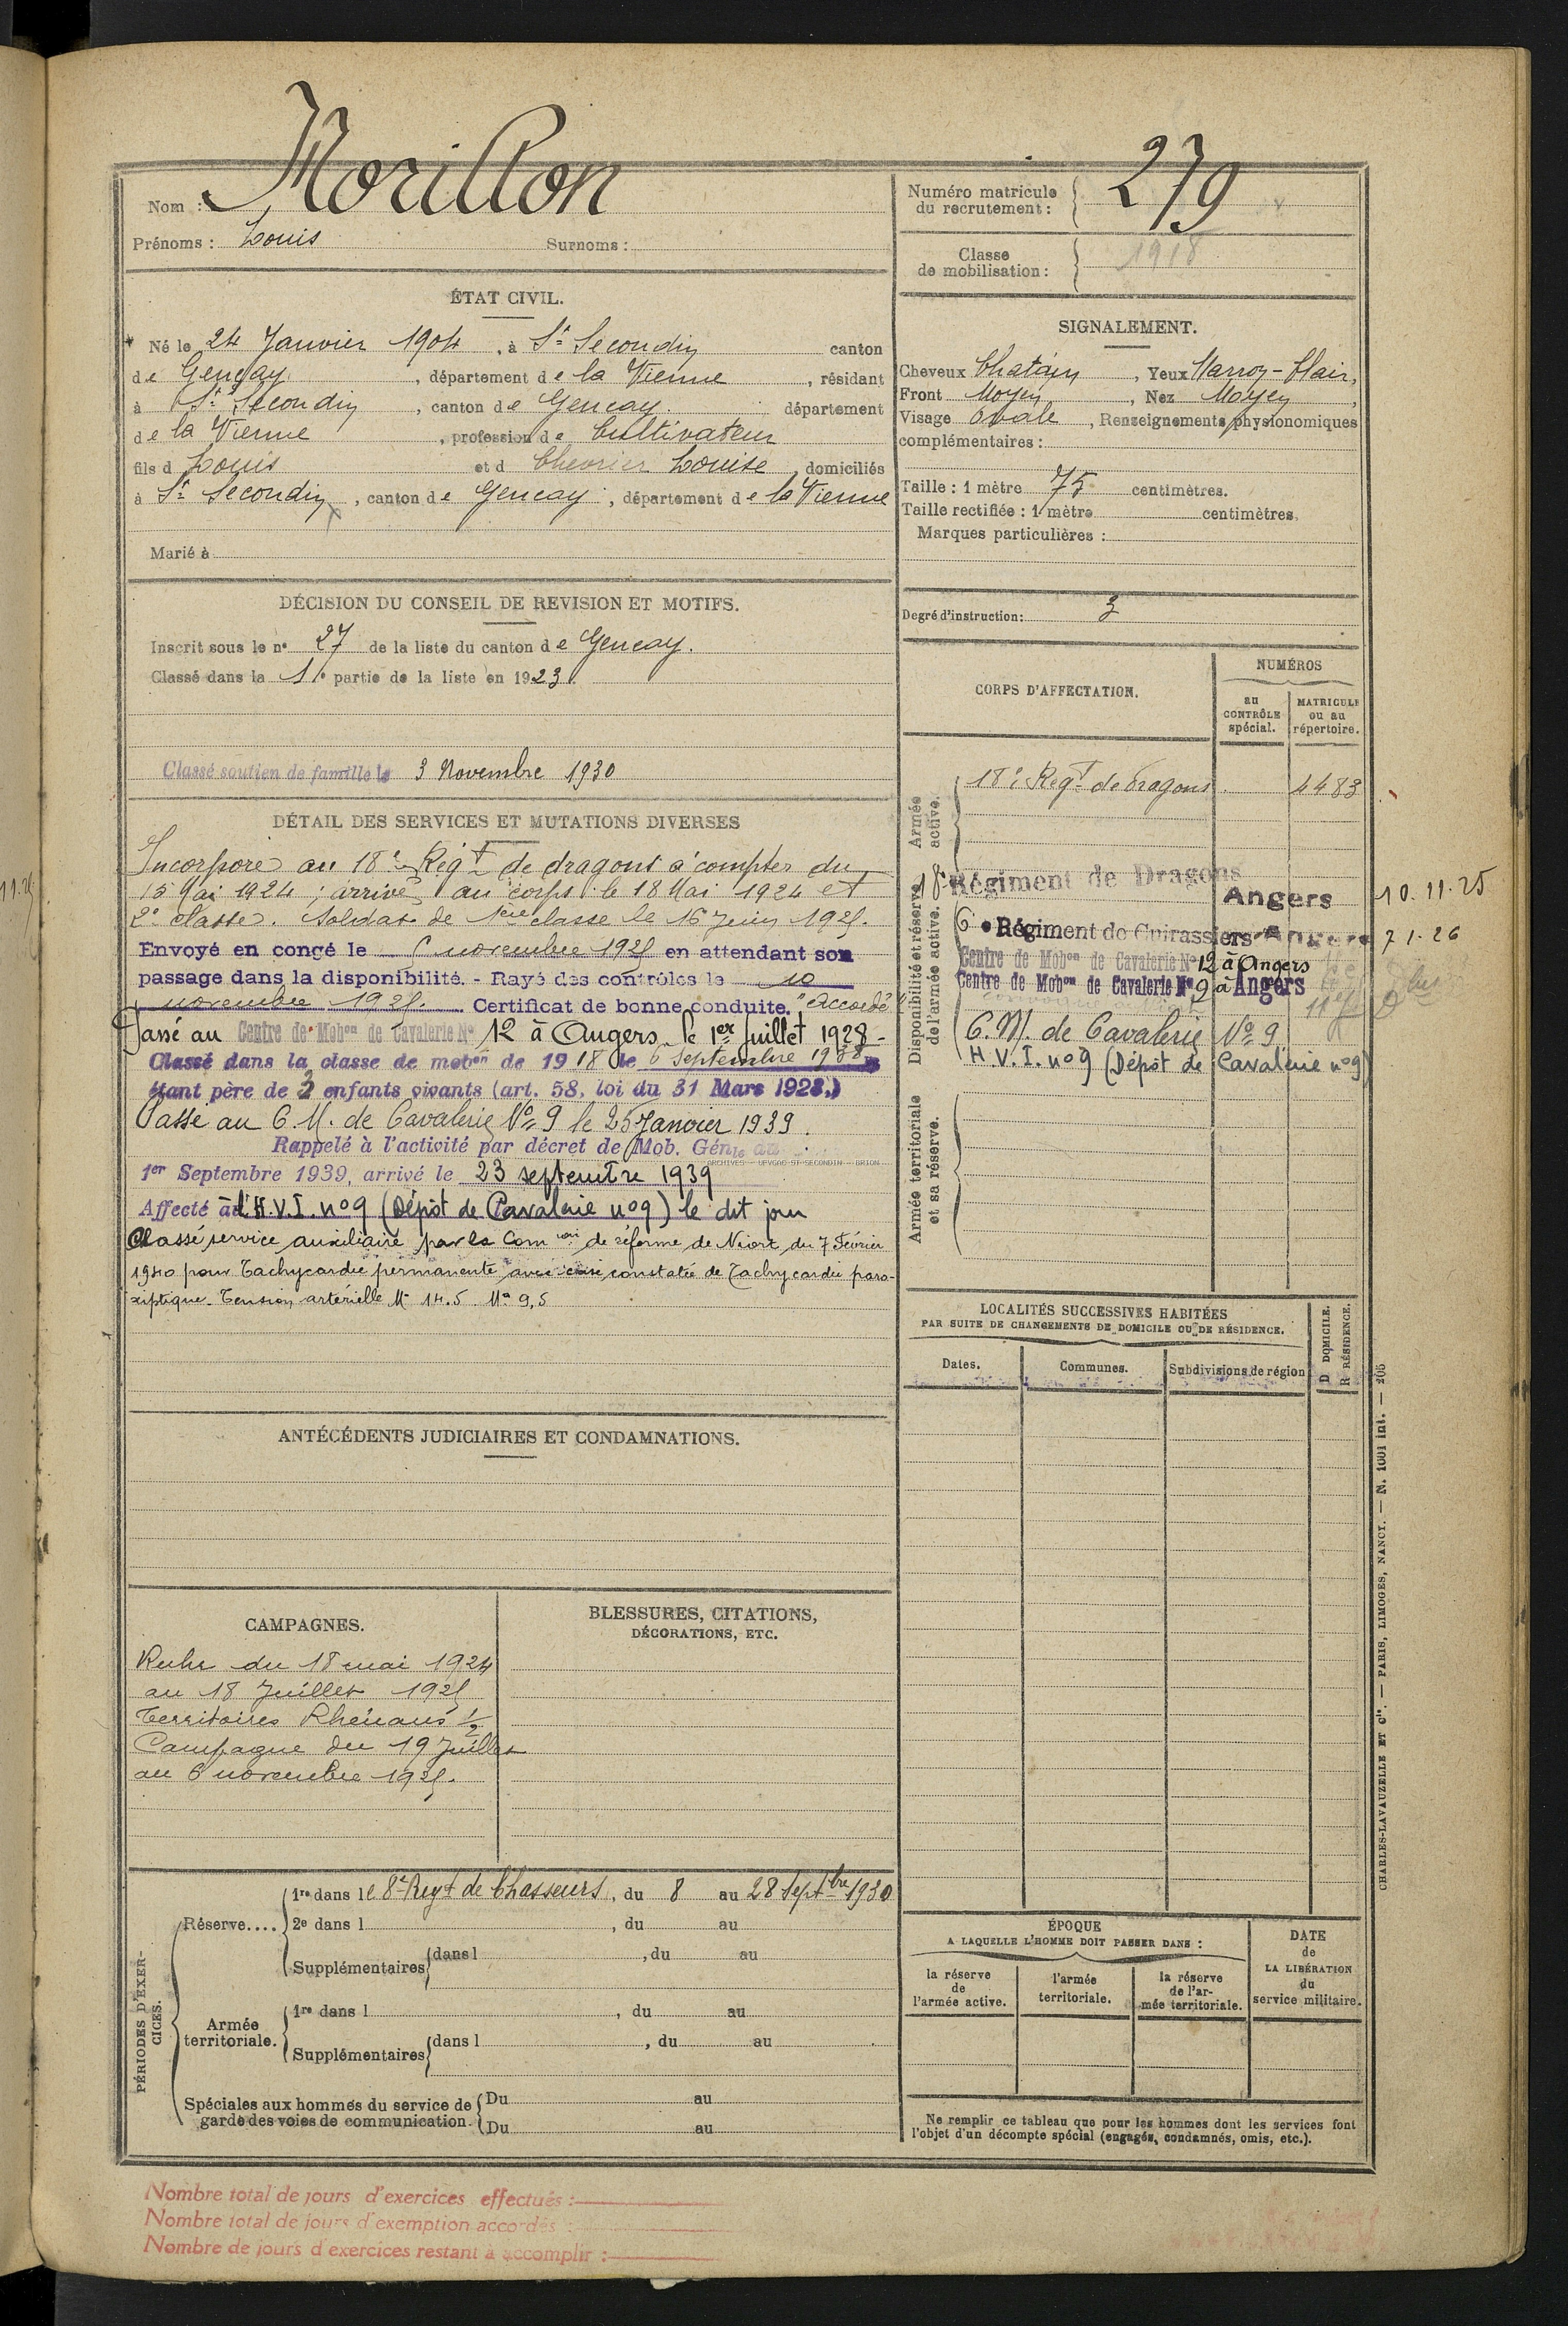 Morillon
Nom :
Prénoms : Louis Surnoms :
Numéro matricule du recrutement : 279
Classe de mobilisation : 1918
ÉTAT CIVIL.
Né le 24 Janvier 1904, à St Secondin canton
de Gençay, département de la Vienne, résidant
à St Secondin, canton de Gençay département
de la Vienne, profession de Cultivateur
fils d Louis et d Chevrier Louise, domiciliés
à St Secondin, canton de Gençay, département de la Vienne
Marié à
SIGNALEMENT.
Cheveux Chatain, Yeux Marron-Clair,
Front Moyen, Nez Moyen,
Visage Ovale, Renseignements physionomiques
complémentaires :
Taille : 1 mètre 75 centimètres.
Taille rectifiée : 1 mètre centimètres.
Marques particulières :
Degré d'instruction : 3
DÉCISION DU CONSEIL DE REVISION ET MOTIFS.
Inscrit sous le n° 27 de la liste du canton de Gençay.
Classé dans la 1e partie de la liste en 1923.
Classé soutien de famille le 3 Novembre 1930
DÉTAIL DES SERVICES ET MUTATIONS DIVERSES
Incorporé au 18e Regt de dragons à compter du
15 Mai 1924 ; arrivé au corps le 18 Mai 1924 et
2e classe. Soldat de 1ère classe le 16 Juin 1925.
Envoyé en congé le 6 novembre 1925 en attendant son
passage dans la disponibilité. - Rayé des contrôles le 10
novembre 1925. Certificat de bonne conduite. "Accordé"
Passé au Centre de Mobon de Cavalerie No 12 à Angers le 1er Juillet 1928 -
Classé dans la classe de mobon de 1918 le 6 Septembre 1938
étant père de 2 enfants vivants (art. 58, loi du 31 Mars 1928.)
Passé au C.M. de Cavalerie No 9 le 25 Janvier 1939.
Rappelé à l'activité par décret de Mob. Génle du
ARCHIVES - UPVGAC-ST-SECONDIN - BRION
1er Septembre 1939, arrivé le 23 septembre 1939
Affecté à l'H.V.I. no 9 (Dépôt de Cavalerie no 9) le dit jour
Classé service auxiliaire par la Comion de réforme de Niort du 7 Février
1940 pour Tachycardie permanente avec crise constatée de Tachycardie paro-
xiptique. Tension artérielle Mx 14.5 Mn 9,5
CORPS D'AFFECTATION.
NUMÉROS
au CONTRÔLE spécial.
MATRICULE ou au répertoire.
Armée active.
18e Regt de dragons 4483
Disponibilité et réserve de l'armée active.
18e Régiment de Dragons Angers 10.11.25
6e Régiment de Cuirassiers Angers 7 1.26
Centre de Mobon de Cavalerie No 12 à Angers
Centre de Mobon de Cavalerie No 9 à Angers
C.M. de Cavalerie No 9.
H.V.I. no 9 (Dépôt de Cavalerie no 9)
Armée territoriale et sa réserve.
LOCALITÉS SUCCESSIVES HABITÉES
PAR SUITE DE CHANGEMENTS DE DOMICILE OU DE RÉSIDENCE.
Dates. Communes. Subdivisions de région
D DOMICILE.
R RÉSIDENCE.
ANTÉCÉDENTS JUDICIAIRES ET CONDAMNATIONS.
CAMPAGNES.
Ruhr du 18 mai 1924
au 18 Juillet 1925
Territoires Rhénans 1/2
Campagne du 19 Juillet
au 6 novembre 1925.
BLESSURES, CITATIONS,
DÉCORATIONS, ETC.
PÉRIODES D'EXERCICES.
Réserve....
1re dans le 8e Regt de Chasseurs, du 8 au 28 Septbre 1930
2e dans l , du au
Supplémentaires dans l , du au
Armée territoriale.
1re dans l , du au
Supplémentaires dans l , du au
Spéciales aux hommes du service de garde des voies de communication.
Du au
Du au
ÉPOQUE
A LAQUELLE L'HOMME DOIT PASSER DANS :
la réserve de l'armée active.
l'armée territoriale.
la réserve de l'armée territoriale.
DATE de LA LIBÉRATION du service militaire.
Ne remplir ce tableau que pour les hommes dont les services font
l'objet d'un décompte spécial (engagés, condamnés, omis, etc.).
CHARLES-LAVAUZELLE ET Cie. — PARIS, LIMOGES, NANCY. — N. 1001 int. — 205
Nombre total de jours d'exercices effectués :
Nombre total de jours d'exemption accordés :
Nombre de jours d'exercices restant à accomplir :